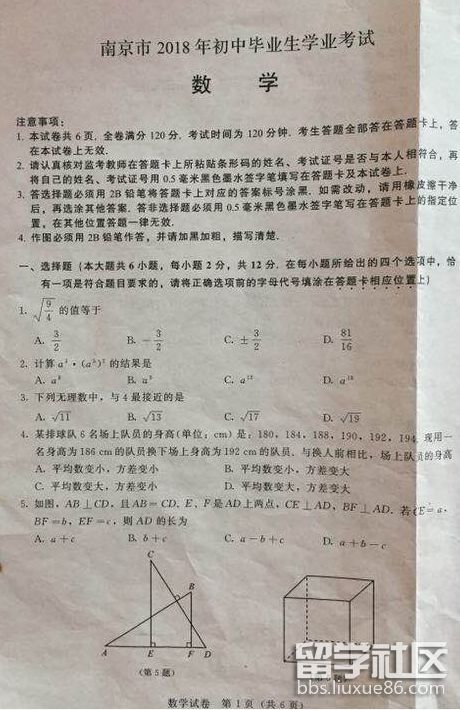 南京市 2018 年初中毕业生学业考试
数 学
注意事项：
1. 本试卷共 6 页. 全卷满分 120 分. 考试时间为 120 分钟. 考生答题全部答在答题卡上，答
在本试卷上无效.
2. 请认真核对监考教师在答题卡上所粘贴条形码的姓名、考试证号是否与本人相符合，再
将自己的姓名、考试证号用 0.5 毫米黑色墨水签字笔填写在答题卡及本试卷上.
3. 答选择题必须用 2B 铅笔将答题卡上对应的答案标号涂黑. 如需改动，请用橡皮擦干净
后，再选涂其他答案. 答非选择题必须用 0.5 毫米黑色墨水签字笔写在答题卡上的指定位
置，在其他位置答题一律无效.
4. 作图必须用 2B 铅笔作答，并请加黑加粗，描写清楚.
一、选择题（本大题共 6 小题，每小题 2 分，共 12 分. 在每小题所给出的四个选项中，恰
有一项是符合题目要求的，请将正确选项前的字母代号填涂在答题卡相应位置上）
1. √(9/4) 的值等于
A. 3/2 B. -3/2 C. ±3/2 D. 81/16
2. 计算 a³·(a³)² 的结果是
A. a⁸ B. a⁹ C. a¹² D. a¹⁸
3. 下列无理数中，与 4 最接近的是
A. √11 B. √13 C. √17 D. √19
4. 某排球队 6 名场上队员的身高(单位：cm)是：180，184，188，190，192，194. 现用一
名身高为 186 cm 的队员换下场上身高为 192 cm 的队员. 与换人前相比，场上队员的身高
A. 平均数变小，方差变小 B. 平均数变小，方差变大
C. 平均数变大，方差变小 D. 平均数变大，方差变大
5. 如图，AB⊥CD，且 AB=CD. E、F 是 AD 上两点，CE⊥AD，BF⊥AD. 若 CE=a，
BF=b，EF=c，则 AD 的长为
A. a+c B. b+c C. a-b+c D. a+b-c
C
B
A E F D
（第 5 题）
留学社区
bbs.liuxue86.com
数学试卷 第 1 页（共 6 页）